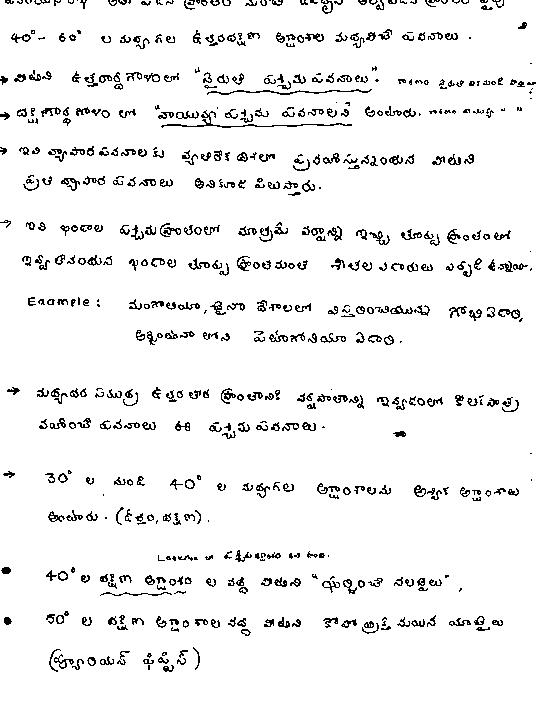 40°- 60° ల మధ్యగల ఉత్తరదక్షిణ అక్షాంశాల మధ్యవీచే పవనాలు.
→ వీటిని ఉత్తరార్ధగోళంలో "నైరుతి పశ్చిమ పవనాలు".
→ దక్షిణార్ధగోళం లో "వాయువ్య పశ్చిమ పవనాలని" అంటారు.
→ ఇవి వ్యాపార పవనాలకు వ్యతిరేక దిశలో ప్రయాణిస్తున్నందున వీటిని
ప్రతి వ్యాపార పవనాలు అనికూడ పిలుస్తారు.
→ ఇవి ఖండాల పశ్చిమప్రాంతంలో మాత్రమే వర్షాన్ని ఇచ్చి తూర్పు ప్రాంతంలో
ఇవ్వలేనందున ఖండాల తూర్పు ప్రాంతమంతా శీతల ఎడారులు ఏర్పడి ఉన్నాయి.
Example : మంగోలియా, చైనా దేశాలలో విస్తరించియున్న గోభిఎడారి,
అర్జెంటీనా లోని పెటాగోనియా ఎడారి.
→ మధ్యధరా సముద్ర ఉత్తర తీర ప్రాంతానికి వర్షపాతాన్ని ఇవ్వడంలో కీలకపాత్ర
వహించే పవనాలు ఈ పశ్చిమ పవనాలు.
→ 30° ల నుండి 40° ల మధ్యగల అక్షాంశాలను అశ్వ అక్షాంశాలు
అంటారు. (ఉత్తర, దక్షిణ).
• 40° ల దక్షిణ అక్షాంశం ల వద్ద వీటిని "ఘర్జించే నలభైలు",
• 50° ల దక్షిణ అక్షాంశాల వద్ద వీటిని కోపోద్రిక్తమయిన యాభైలు
(ఫ్యూరియస్ ఫిఫ్టీస్)